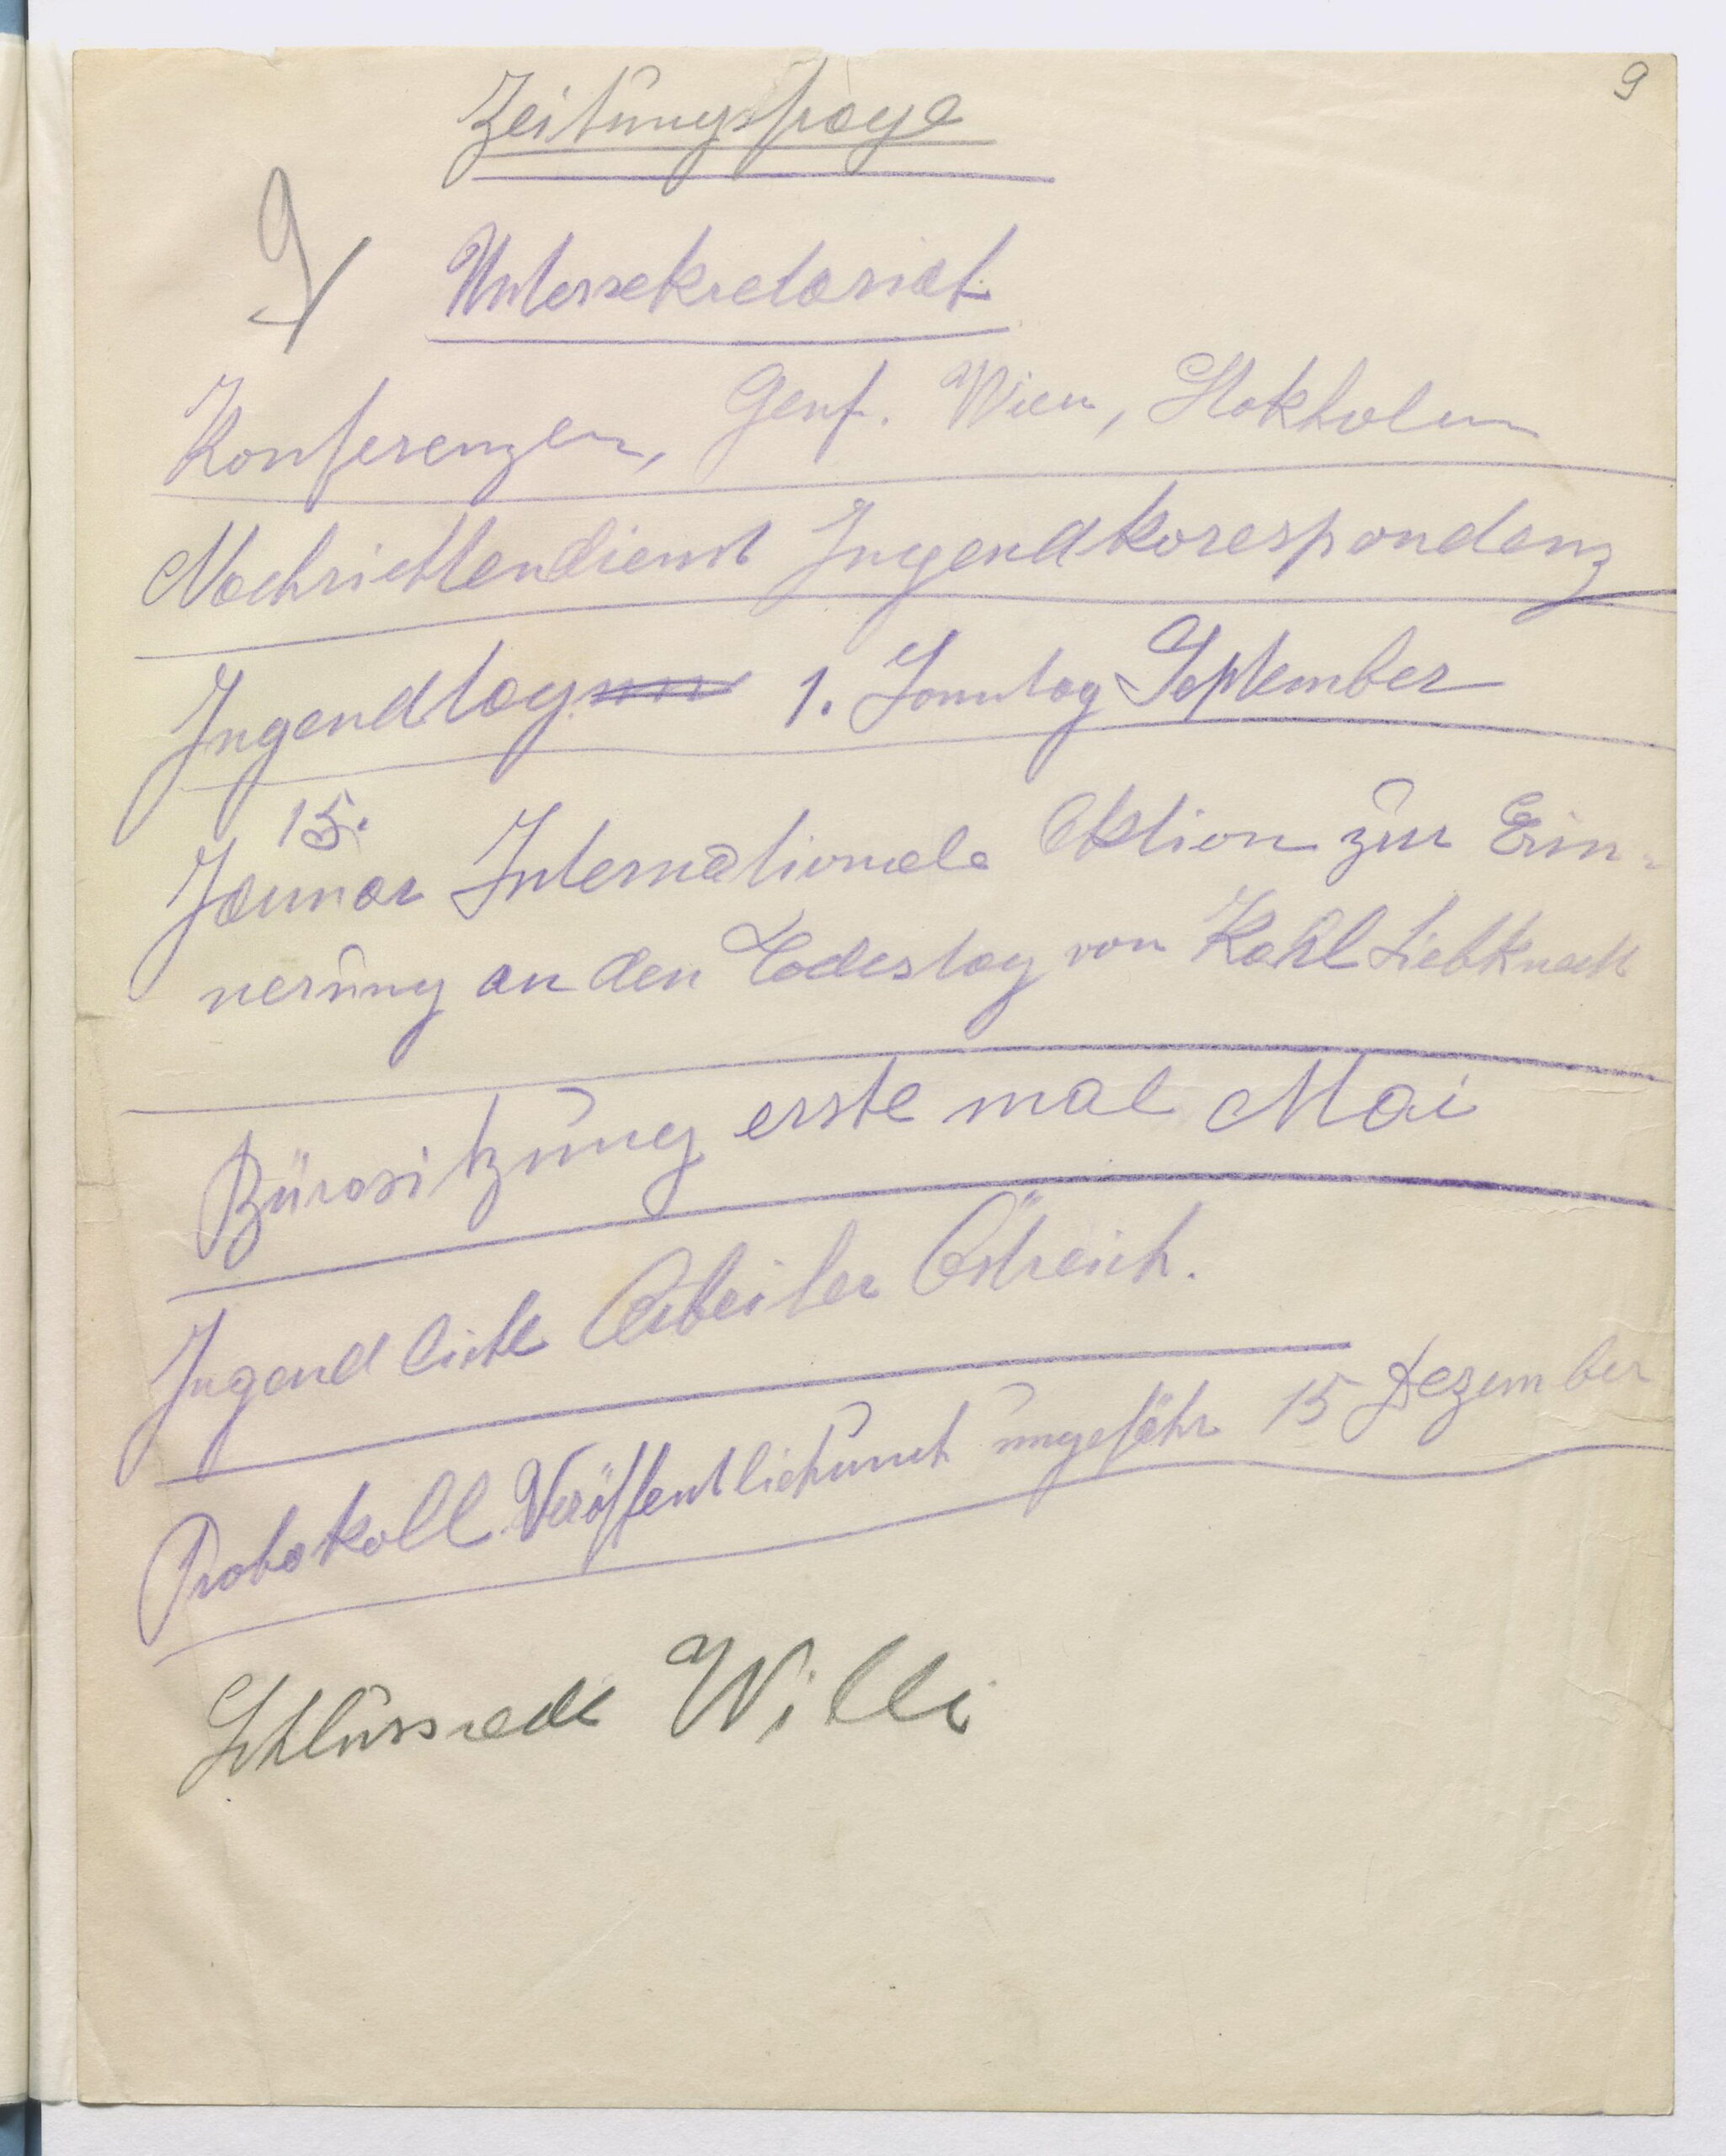 9
Zeitungsfrage
9
Untersekretariat
Konferenzen, Genf. Wien, Stokholm
Nachrichtendienst Jugendkorespondenz
Jugendtag 1. Sonntag September
15.
Januar Internationale Aktion zur Erin-
nerung an den Todestag von Karl Liebknech
Bürositzung erste mal Mai
Jugendliche Arbeiter Östreich.
Protokoll Veröffentlichung ungefähr 15 Dezember
Schlussrede Willi